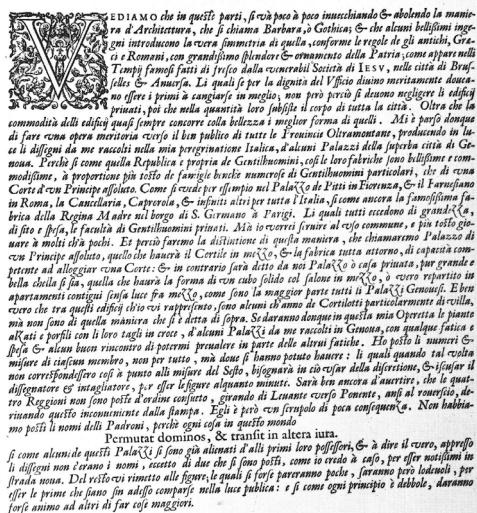 VEDIAMO che in queste parti, si và poco à poco inuecchiando & abolendo la manie-
ra d'Architettura, che si chiama Barbara, ò Gothica; & che alcuni bellissimi inge-
gni introducono la vera simmetria di quella, conforme le regole de gli antichi, Gre-
ci e Romani, con grandissimo splendore & ornamento della Patria; come appare nelli
Tempij famosi fatti di fresco dalla venerabil Società di IESV, nelle città di Brus-
selles & Anuersa. Li quali se per la dignità del Vfficio diuino meritamente doueua-
no essere i primi à cangiarsi in meglio; non però perciò si deuono negligere li edificij
priuati, poi che nella quantità loro subsiste il corpo di tutta la città. Oltra che la
commodità delli edificij quasi sempre concorre colla bellezza i meglior forma di quelli. Mi è parso donque
di fare vna opera meritoria verso il ben publico di tutte le Prouincie Oltramontane, producendo in lu-
ce li dissegni da me raccolti nella mia peregrinatione Italica, d'alcuni Palazzi della superba città di Ge-
noua. Perche si come quella Republica è propria de Gentilhuomini, così le loro fabriche sono bellissime e com-
modissime, à proportione più tosto de famiglie benche numerose di Gentilhuomini particolari, che di vna
Corte d'vn Principe assoluto. Come si vede per essempio nel Palazzo de Pitti in Fiorenza, & il Farnesiano
in Roma, la Cancellaria, Caprarola, & infiniti altri per tutta l'Italia, si come ancora la famosissima fa-
brica della Regina Madre nel borgo di S. Germano à Parigi. Li quali tutti eccedono di grandezza,
di sito e spesa, le facultà di Gentilhuomini priuati. Mà io vorrei seruire al vso commune, e più tosto gio-
uare à molti ch'à pochi. Et perciò faremo la distintione di questa maniera, che chiamaremo Palazzo di
vn Principe assoluto, quello che hauerà il Cortile in mezzo, & la fabrica tutta attorno, di capacità com-
petente ad alloggiar vna Corte: & in contrario sarà detto da noi Palazzo ò casa priuata, pur grande e
bella chella si sia, quella che haurà la forma di vn cubo solido col salone in mezzo, ò vero repartito in
apartamenti contigui sensa luce fra mezzo, come sono la maggior parte tutti li Palazzi Genouesi. E ben
vero che tra questi edificij ch'io vi rappresento, sono alcuni ch'anno de Cortilotti particolarmente di villa,
mà non sono di quella maniera che si è detta di sopra. Se daranno donque in questa mia Operetta le piante
alzati e porfili con li loro tagli in croce, d'alcuni Palazzi da me raccolti in Genoua, con qualque fatica e
spesa & alcun buon rincontro di potermi preualere in parte delle altrui fatiche. Ho posto li numeri &
misure di ciascun membro, non per tutto, mà doue si hanno potuto hauere: li quali quando tal volta
non correspondessero così à punto alli misure del Sesto, bisognarà in ciò vsar della discretione, & iscusar il
dissegnatore & intagliatore, per esser le figure alquanto minute. Sarà ben ancora d'auertire, che le quat-
tro Reggioni non sono poste d'ordine consueto, girando di Leuante verso Ponente, ansi al rouerscio, de-
riuando questo inconueniente dalla stampa. Egli è però vn scrupolo di poca consequenza. Non habbia-
mo posti li nomi delli Padroni, perche ogni cosa in questo mondo
Permutat dominos, & transit in altera iura.
si come alcuni de questi Palazzi si sono già alienati d'alli primi loro possessori, & à dire il vero, appresso
li dissegni non v'erano i nomi, eccetto di due che si sono posti, come io credo à caso, per esser notissimi in
strada noua. Del resto vi rimetto alle figure; le quali si forse pareranno poche, saranno però lodeuoli, per
esser le prime che siano sin adesso comparse nella luce publica: e si come ogni principio è debbole, daranno
forse animo ad altri di far cose maggiori.